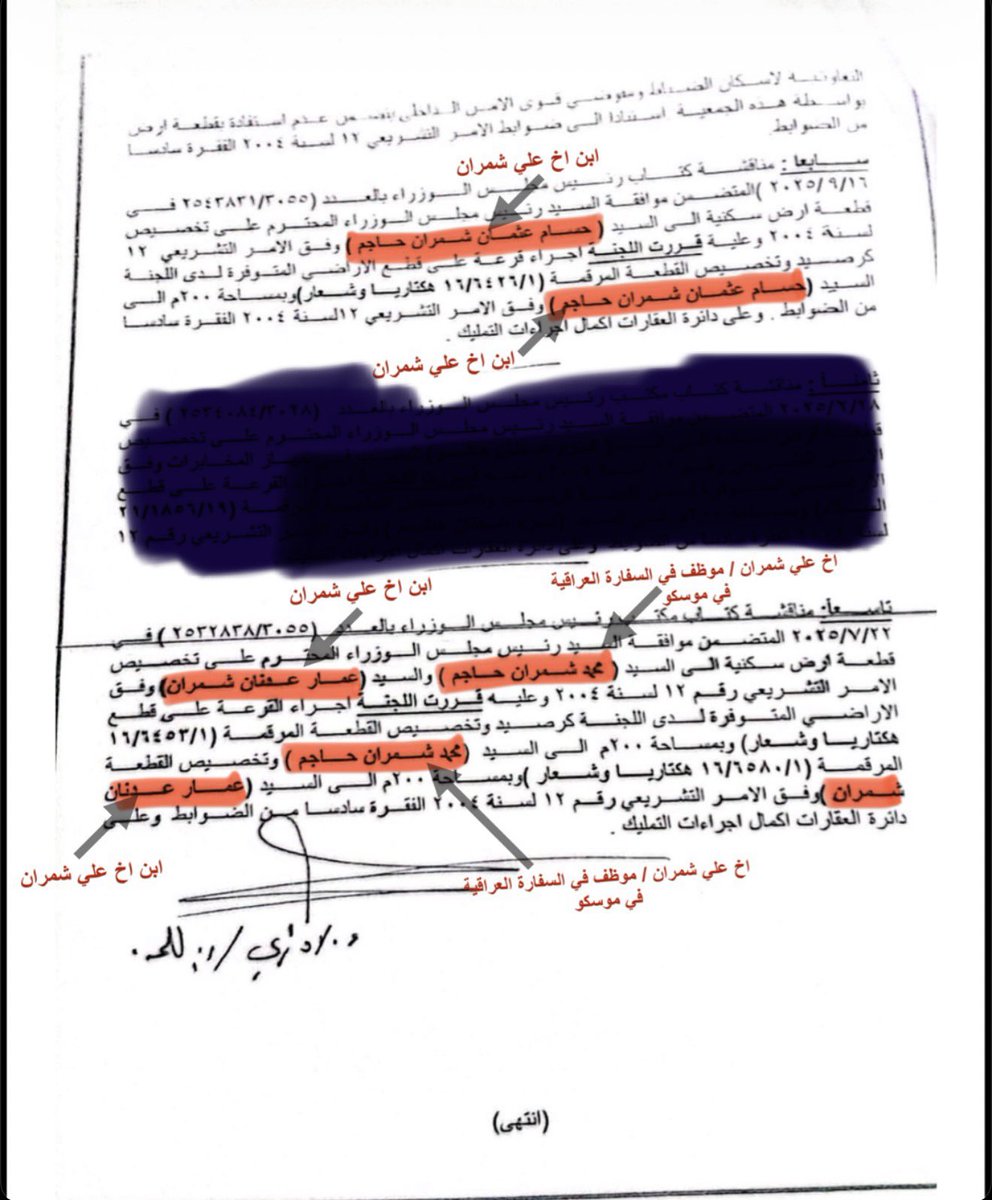 التعاونية لاسكان الضباط ومفوضي قوى الامن الداخلي يتضمن عدم استفادة بقطعة ارض
بواسطة هذه الجمعية استنادا الى ضوابط الامر التشريعي ١٢ لسنة ٢٠٠٤ الفقرة سادسا
من الضوابط.
ابن اخ علي شمران
سابعا : مناقشة كتاب رئيس مجلس الوزراء بالعدد (٢٥٤٣٨٣١/٣٠٥٥ في
٢٠٢٥/٩/١٦ )المتضمن موافقة السيد رئيس مجلس الوزراء المحترم على تخصيص
قطعة ارض سكنية الى السيد ( حسام عثمان شمران حاجم ) وفق الامر التشريعي ١٢
لسنة ٢٠٠٤ وعلية قررت اللجنة اجراء قرعة على قطع الاراضي المتوفرة لدى اللجنة
كرصيد وتخصيص القطعة المرقمة (١٦/٦٤٢٦/١ هكتاريا وشعار)وبمساحة ٢٠٠م الى
السيد (حسام عثمان شمران حاجم ) وفق الامر التشريعي ١٢لسنة ٢٠٠٤ الفقرة سادسا
من الضوابط . وعلى دائرة العقارات اكمال اجراءات التمليك .
ابن اخ علي شمران
ثامناً : مناقشة كتاب مكتب رئيس مجلس الوزراء بالعدد (٢٥٣٤٠٨٤/٣٠٢٨ ) في
المتضمن موافقة السيد رئيس مجلس الوزراء المحترم على تخصيص
المخابرات وفق
القرعة على قطع
٢١/١٨٥٦/١٩
التشريعي رقم ١٢
اخ علي شمران / موظف في السفارة العراقية
في موسكو
ابن اخ علي شمران
تاسعاً: مناقشة كتاب مكتب رئيس مجلس الوزراء بالعدد (٢٥٣٢٨٣٨/٣٠٥٥ ) في
٢٠٢٥/٧/٢٢ المتضمن موافقة السيد رئيس مجلس الوزراء المحترم على تخصيص
قطعة ارض سكنية الى السيد ( محمد شمران حاجم ) والسيد (عمار عدنان شمران) وفق
الامر التشريعي رقم ١٢ لسنة ٢٠٠٤ وعليه قررت اللجنة اجراء القرعة على قطع
الاراضي المتوفرة لدى اللجنة كرصيد وتخصيص القطعة الموقمة (١٦/٦٤٥٣/١
هكتاريا وشعار) وبمساحة ٢٠٠م الى السيد (محمد شمران حاجم ) وتخصيص القطعة
المرقمة (١٦/٦٥٨٠/١ هكتاريا وشعار )وبمساحة ٢٠٠م الى السيد (عمار عدنان
شمران )وفق الامر التشريعي رقم ١٢ لسنة ٢٠٠٤ الفقرة سادسا من الضوابط وعلى
دائرة العقارات اكمال اجراءات التمليك .
ابن اخ علي شمران
اخ علي شمران / موظف في السفارة العراقية
في موسكو
(انتهى)